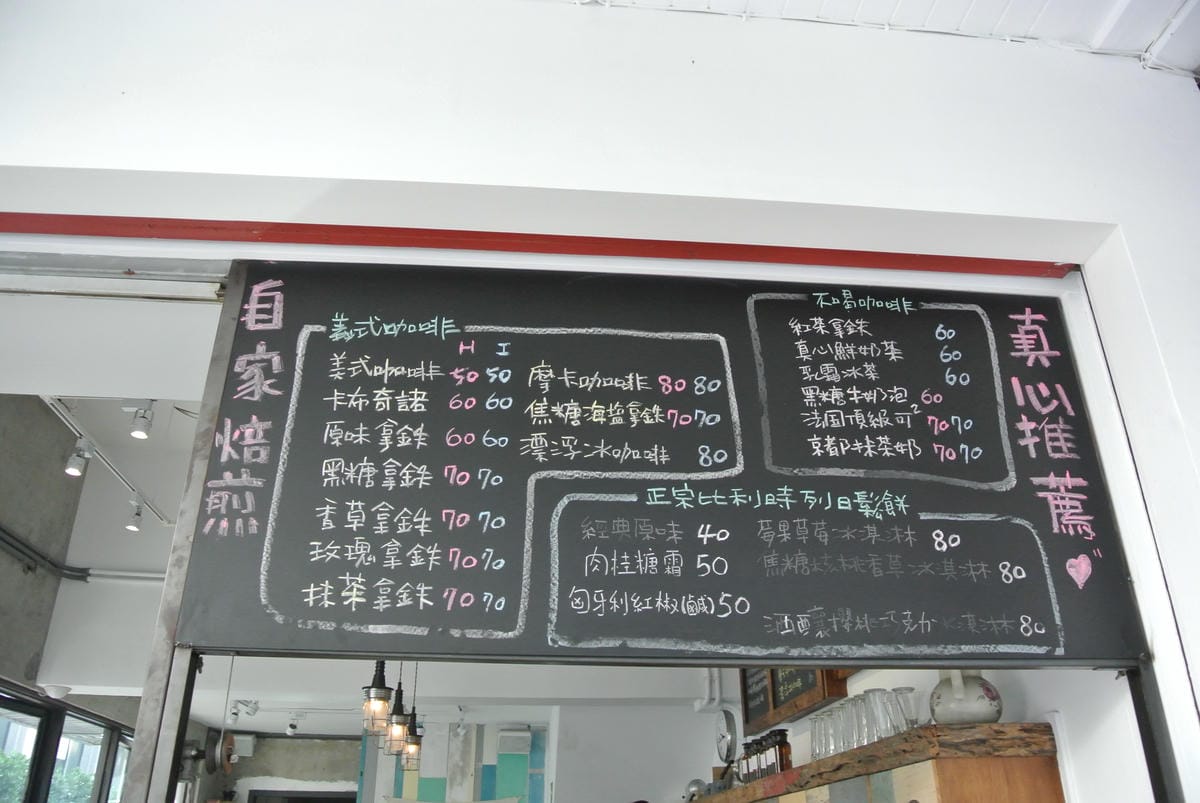 自家焙煎
義式咖啡
H I
義式咖啡 50 50
卡布奇諾 60 60
原味拿鉄 60 60
黑糖拿鉄 70 70
香草拿鉄 70 70
玫瑰拿鉄 70 70
抹茶拿鉄 70 70
摩卡咖啡 80 80
焦糖海盐拿鉄 70 70
漂浮冰咖啡 80
不喝咖啡
紅茶拿鉄 60
真心鮮奶茶 60
乳霜冰茶 60
黑糖牛奶泡 60
法國頂級可² 70 70
京都抹茶奶 70 70
正宗比利時列日鬆餅
經典原味 40
肉桂糖霜 50
匈牙利紅椒(鹹) 50
莓果草莓冰淇淋 80
焦糖核桃香草冰淇淋 80
酒釀櫻桃巧克力冰淇淋 80
真心推薦